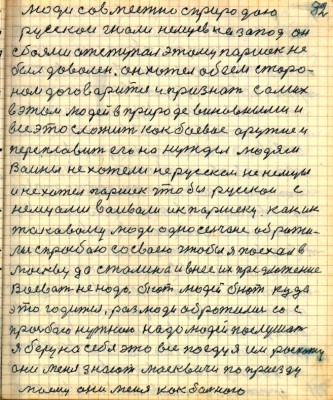 92
люди совместно с природою
русской гнали немцев на запад он
с боями отступал этому парнек не
был доволен. он хотел обеем сторо-
нам договарится и признат самих
в этом людей в природе виновными и
все это сложит как боевое оружие и
переплавит его на нужды людям
Войны не хотели не русской не немцы
и не хотел парнек чтобы русской с
немцами воивали ик парнеку. как ик
таковому люди односельчане обрати-
лис прозбою со своею чтобы я поехал в
москву до сталина и внес их предложение
Воеват не надо, бют людей бют куда
это годится, раз люди обротилис со с
прозбою нужною надо люди послушат
я беру на себя это все поедуя им роскажу
они меня знают москвичи по приезду
моему они меня как такного